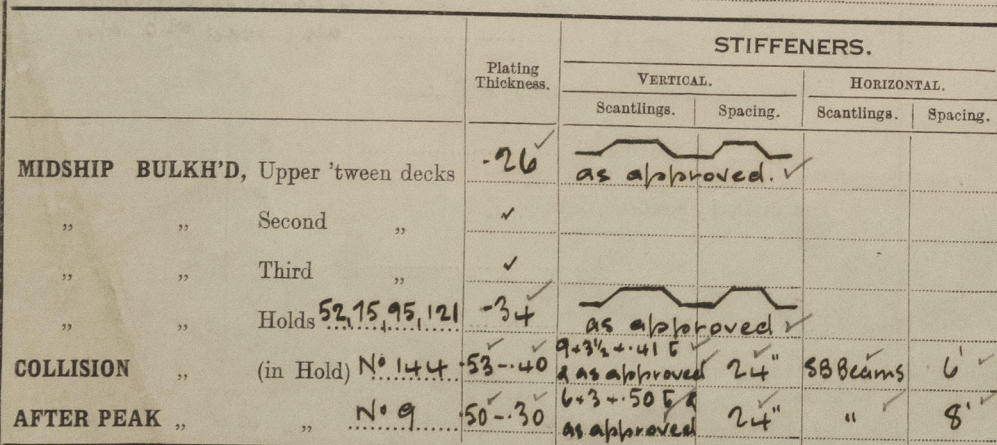 STIFFENERS.
Plating Thickness. VERTICAL. HORIZONTAL.
Scantlings. Spacing. Scantlings. Spacing.
MIDSHIP BULKH'D, Upper 'tween decks ·26 ✓ as approved. ✓
„ „ Second „ ✓
„ „ Third „ ✓
„ „ Holds 52,75,95,121 ·34 ✓ as approved ✓
COLLISION „ (in Hold) Nº 144 ·53-·40 9+3½+·41 [ & as approved 24" SB Beams 6'
AFTER PEAK „ „ Nº 9 ·50-·30 6+3+·50 [ & as approved 24" " 8'